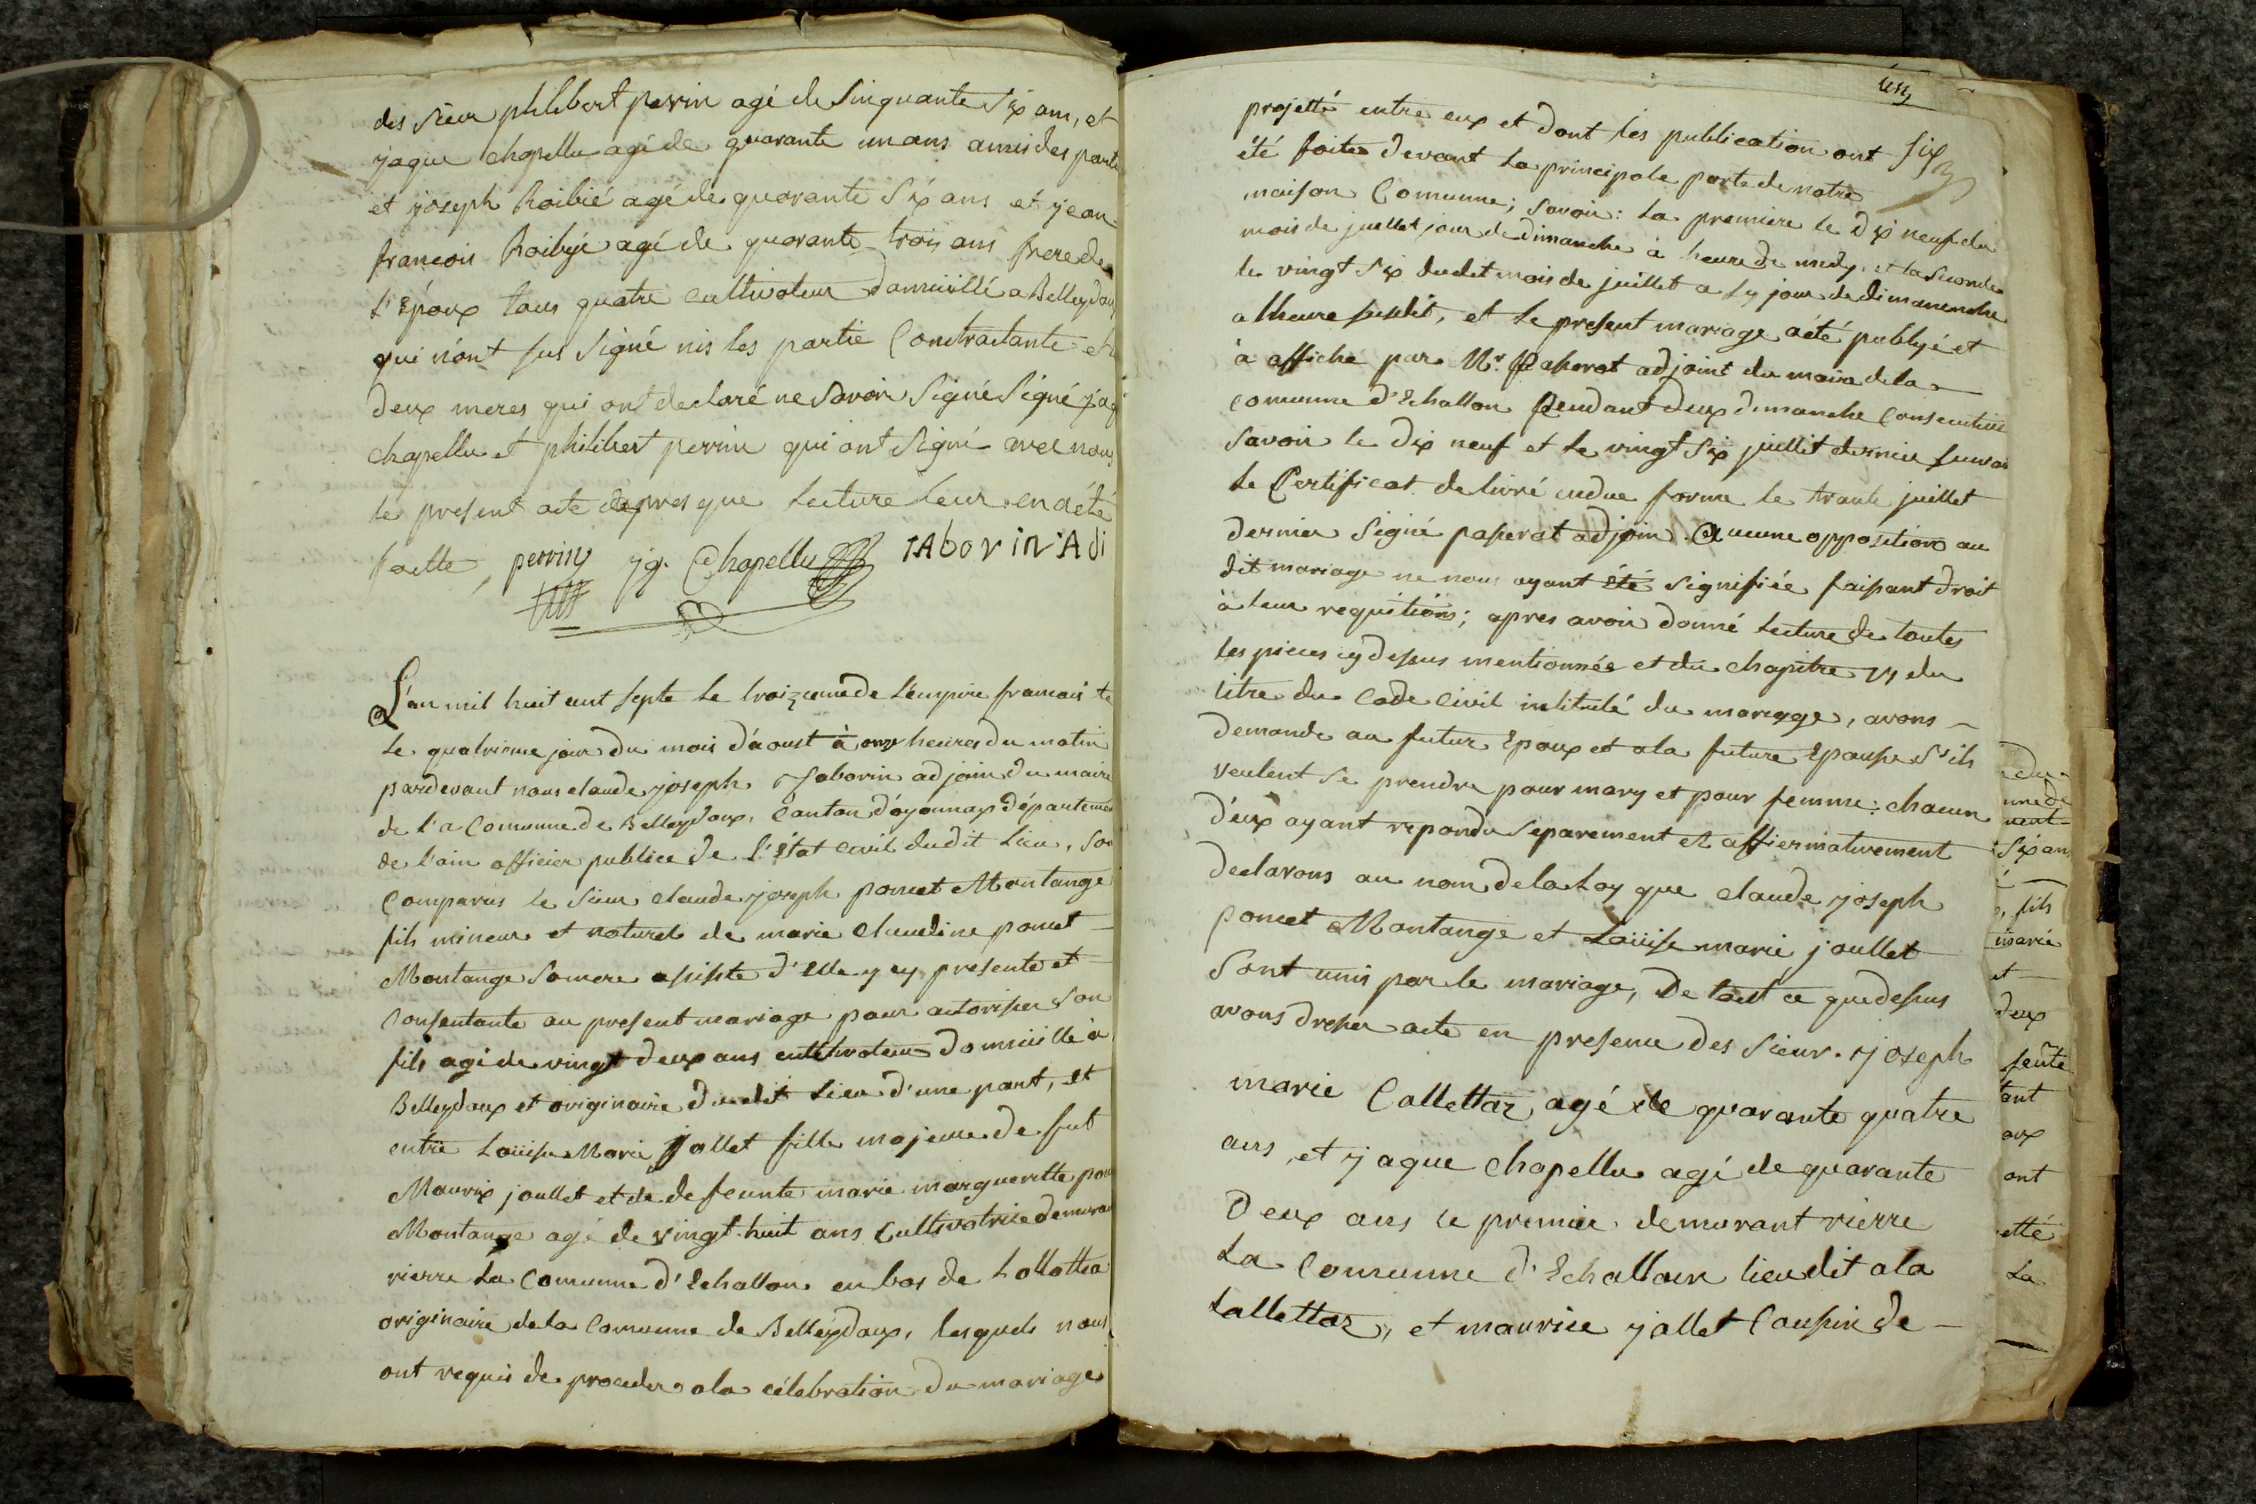 des sieur philibert perrin agé de sinquante six ans, et
jaque chapellu agé de quarante un ans amis des parti
et joseph hoibié agé de quarante six ans et jean
francois hoibjé agé de quarante trois ans frere de
l'Epoux tous quatre cultivateur domicillé a Belleydoux
qui n'ont sus signé nis les partie Contractante et
deux meres qui ont declaré ne savoir signé signé jaq
chapellu et philibert perrin qui ont signé avec nous
le present acte apres que lecture leur en a été
faitte, perrin jq. Chapellu TAborin Adj
L'an mil huit cent septe le troizieme de l'empire francais
le quatrieme jour du mois d'aoust à onze heures du matin
pardevant nous claude joseph Taborin adjoin du maire
de l'a Comunne de Belleydoux, Canton d'oyonnax départemen
de l'ain officier publice de l'état civil dudit lieu, son
Comparus le sieur claude joseph poncet Montange
fils mineur et naturel de marie claudine poncet
Montange sa mere assiste d'elle y cy presente et
Consentante au present mariage pour autoriser son
fils agé de vingt deux ans cultivateur domicillé à
Belleydoux et originaire dudit lieu d'une part, et
entre Louise Marie jollet fille majeure de fut
Maurix joullet et de defeunte marie margueritte pon
Montange agé de vingt-huit ans Cultivatrice demuran
rierre la Comunne d'Echallon en bas de Lollottia
originaire de la Comunne de Belleydoux, lesquels nous
ont requis de proceder a la célébration du mariage
six
projetté entre eux et dont les publication ont
été faite devant la principale porte de notre
maison Comunne; savoir: la premiere le dix neuf du
mois de juillet jour de dimanche à heure de midy, et la seconde
le vingt six dudit mois de juillet a sy jour de dimanenche
a lheure susdit, et le present mariage a été publyé et
à affiché par Mr. paherat adjoint du maire de la
comunne d'Echallon pendant deux dimanche Consecutive
savoir le dix neuf et le vingt six juillet dernier suivan
le Certificat delivré endue forme le trante juillet
dernier signé paserat adjoin. Aucune opposition au
dit mariage ne nous ayant été signifiée faisant droit
à leur requitions; apres avoir donné lecture de toutes
les pieces cy dessus mentionnée et du chapitre VI du
titre du Code Civil intitulé du mariage, avons
demande au futur Epoux et a la future Epouse s'ils
veulent se prendre pour mary et pour femme: chacun
d'eux ayant repondu separement et affiermativement
declarons au nom de la loy que claude joseph
poncet Montange et Louise marie joullet
sont unis par le mariage, De tout ce que dessus
avons dresser acte en presence des sieur. joseph
marie Callettaz agé de quarante quatre
ans, et jaque chapellu agé de quarante
Deux ans le premier demurant rierre
La Comunne d'Echallon lieu dit a la
Lallettaz, et maurice jallet Cousin de